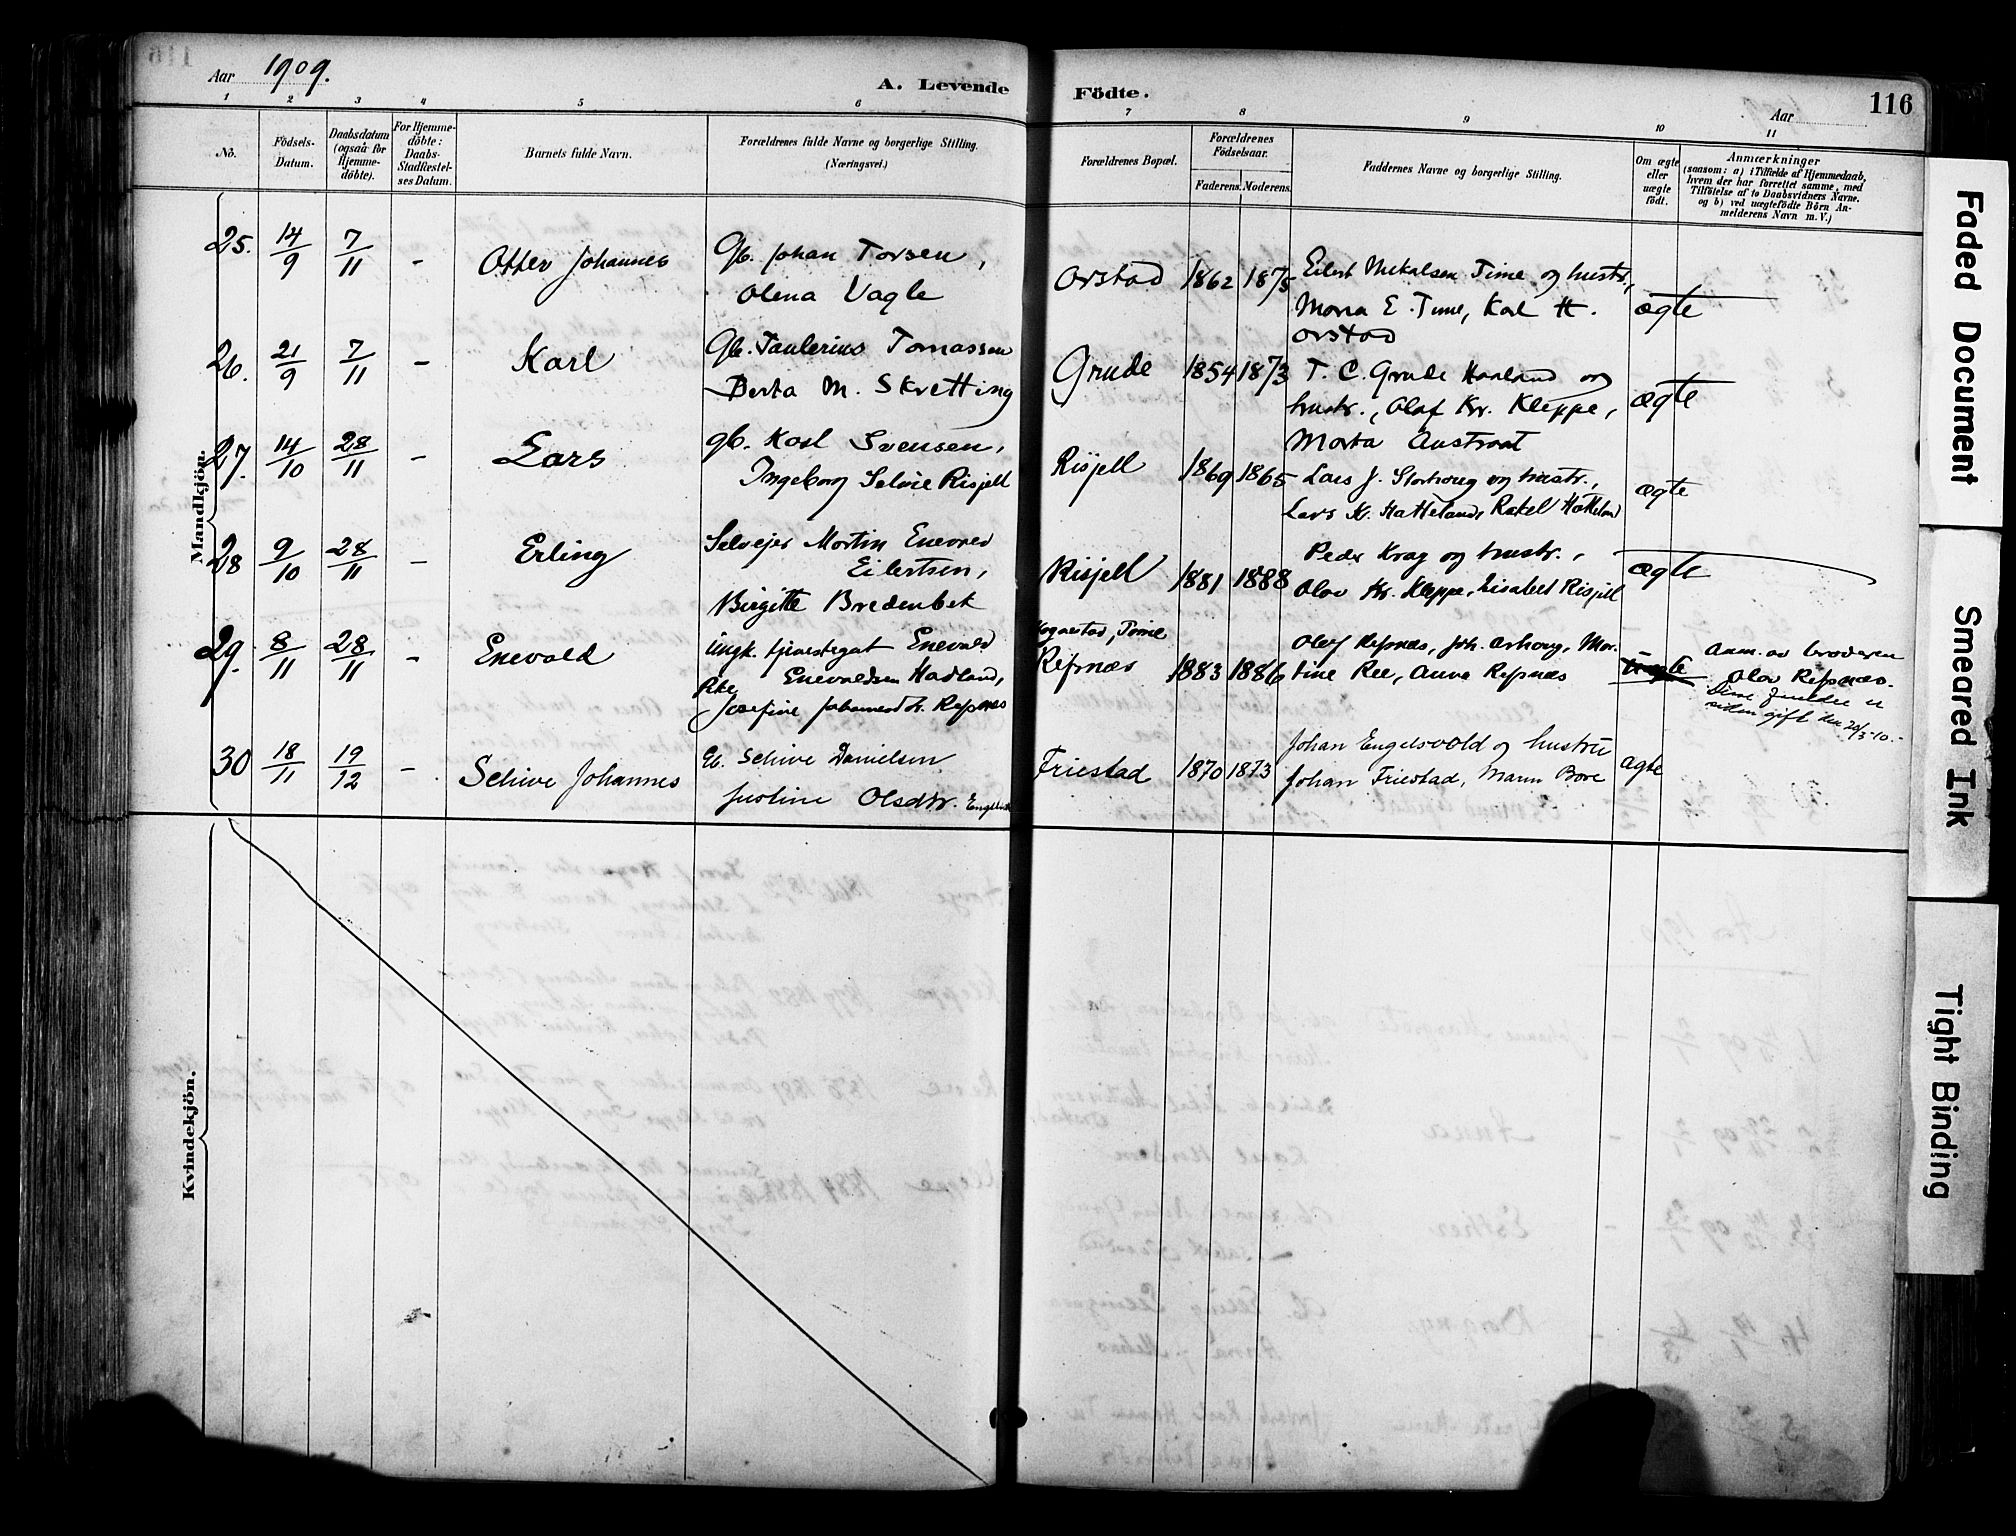 116
Aar 1909.
A. Levende Födte.
Aar
1 2 3 4 5 6 7 8 9 10 11
No.
Födsels-Datum.
Daabsdatum (ogsaa for Hjemme-döbte).
For Hjemme-döbte: Daabs-Stadfæstel-ses Datum.
Barnets fulde Navn.
Forældrenes fulde Navne og borgerlige Stilling.
(Næringsvei.)
Forældrenes Bopæl.
Forældrenes Födselsaar.
Faderens. Moderens.
Faddernes Navne og borgerlige Stilling.
Om ægte eller uægte födt.
Anmærkninger
(saasom: a) i Tilfælde af Hjemmedaab,
hvem der har forrettet samme, med
Tilföielse af to Daabsvidners Navne.
og b) ved uægtefödte Börn An-
melderens Navn m. V.)
Mandkjön.
25. 14/9 7/11 - Otter Johannes
Gb. Johan Torsen,
Olena Vagle
Orstad 1862 1875
Eilert Mikalsen Time og hustr.,
Marta E. Time, Karl H.
Orstad
ægte
26. 21/9 7/11 - Karl
Gb. Taulerius Tomassen
Berta M. Skretting
Grude 1854 1873
T. C. Grude Haaland og
hustr., Olaf Kr. Kleppe,
Marta Austraat
ægte
27. 14/10 28/11 - Lars
gb. Karl Svensen,
Ingeborg Seline Risjell
Risjell 1869 1865
Lars J. Storhoug og hustr.,
Lars K. Hatteland, Rakel Hatteland
ægte
28 9/10 28/11 - Erling
Selvejer Martin Enevald
Eilertsen,
Birgitte Bredenbek
Risjell 1881 1888
Peder Krag og hustr.,
Olav Kr. Kleppe, Lisabet Risjell
ægte
29. 8/11 28/11 - Enevald
ungk. tjenestegut Enevald
Enevaldsen Hadland,
Pike Josefine Johannesdtr. Refsnæs
Hognestad, Time
Refsnæs 1883 1886
Olaf Refsnæs, Joh. Arhoug, Mar-
tine Ree, Anna Refsnæs
uægte
Anm. av broderen
Olav Refsnæs.
Disse forældre er
siden gift den 20/3-10.-
30 18/11 19/12 - Schive Johannes
Gb. Schive Danielsen
Justine Olsdtr.
Friestad 1870 1873
Johan Engelsvold og hustru
Johan Friestad, Marin Bore
ægte
Kvindekjön.
Faded Document
Smeared Ink
Tight Binding